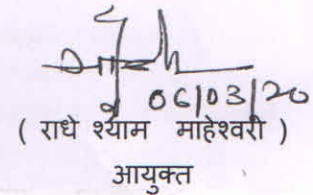 06/03/20
( राधे श्याम माहेश्वरी )
आयुक्त